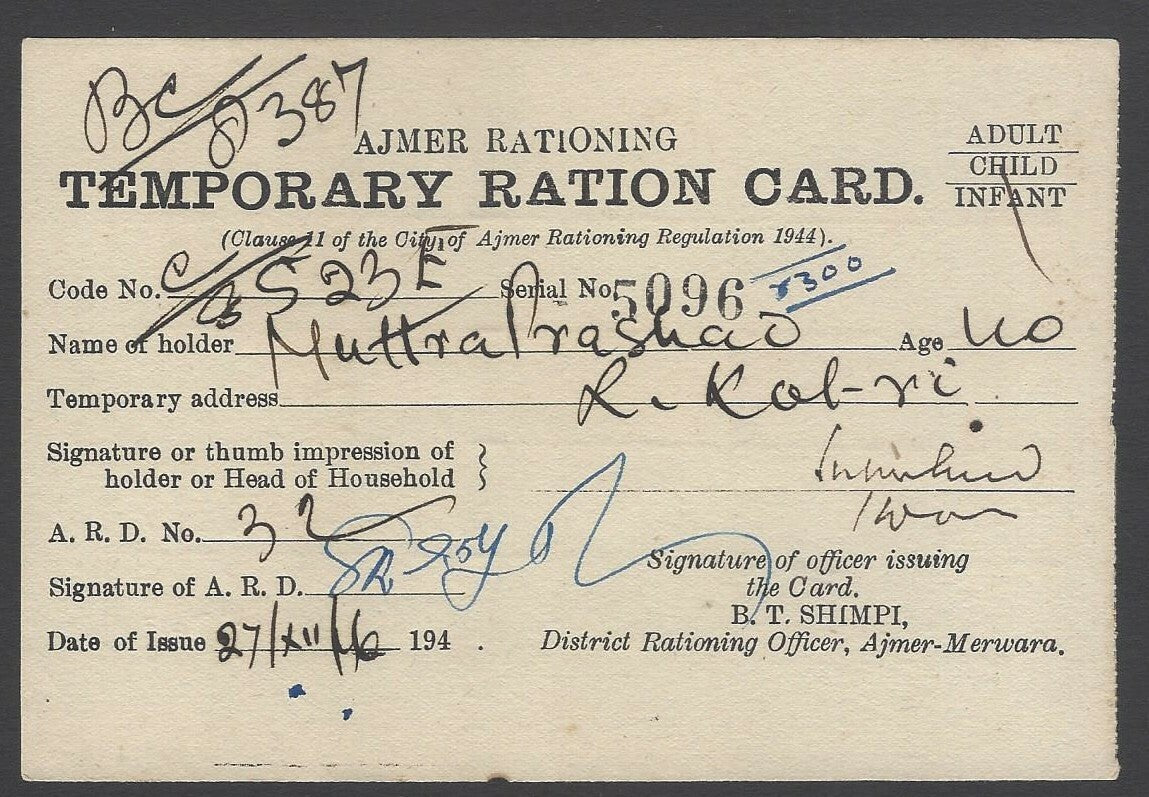 BC
8387
AJMER RATIONING
TEMPORARY RATION CARD.
ADULT
CHILD
INFANT
(Clause 11 of the City of Ajmer Rationing Regulation 1944).
Code No. C 523E Serial No. 5096 8300
Name of holder Muttra Prashad Age 40
Temporary address
Signature or thumb impression of
holder or Head of Household
A. R. D. No. 32
Signature of A. R. D.
Signature of officer issuing
the Card.
B. T. SHIMPI,
Date of Issue 27/XII/46 194 .
District Rationing Officer, Ajmer-Merwara.